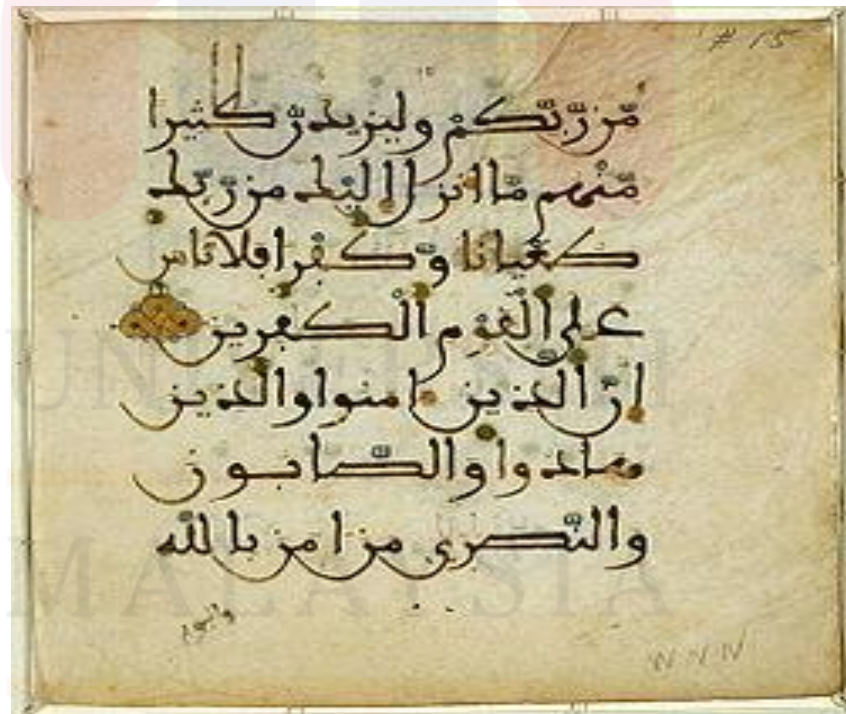 # 15
مّن رَّبّكم وليزيدنّ كثيرا
مّنهم مّا انزل اليك من رّبّك
طغيانا وّكفرا فلا تاس
على القوم الكفرين
انّ الذين امنوا والذين
هادوا والصّابون
والنّصرى من امن بالله
واليوم
W N W
UN
MALAYSIA